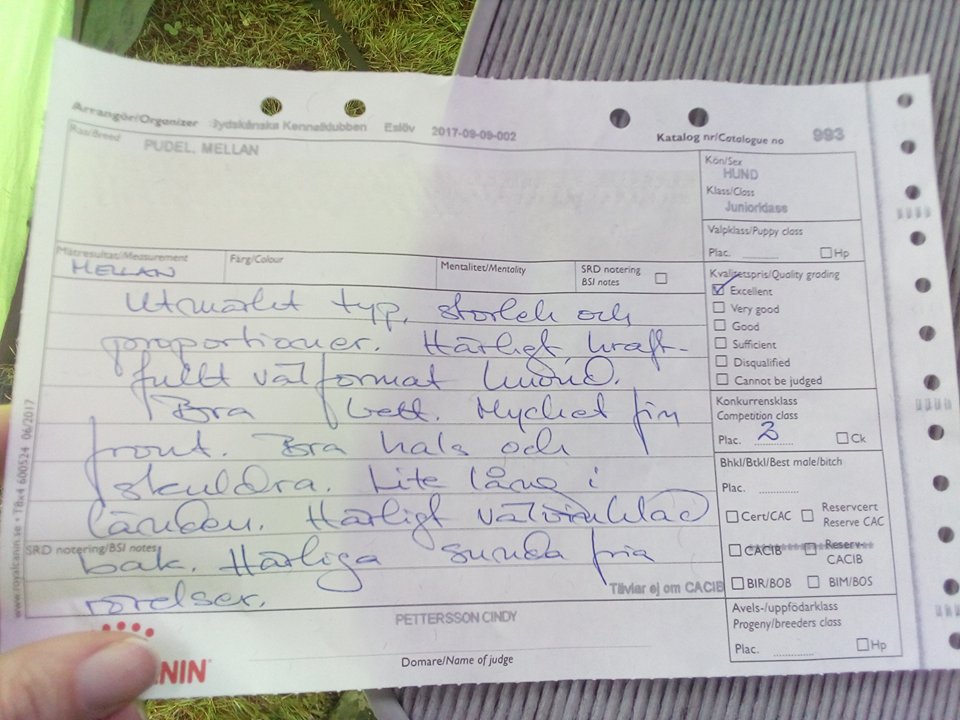 Arrangör/Organizer Sydskånska Kennelklubben Eslöv 2017-09-09-002 Katalog nr/Catalogue no 993
Ras/Breed
PUDEL, MELLAN
Kön/Sex
HUND
Klass/Class
Juniorklass
Valpklass/Puppy class
Plac. Hp
Mätresultat/Measurement Färg/Colour Mentalitet/Mentality SRD notering
BSI notes
MELLAN
Kvalitetspris/Quality grading
Excellent
Very good
Good
Sufficient
Disqualified
Cannot be judged
Utmärkt typ, storlek och
proportioner. Härligt, kraft-
fullt välformat huvud.
Bra bett. Mycket fin
front. Bra hals och
skuldra. Lite lång i
länden. Härligt välvinklad
bak. Härliga sunda fria
rörelser.
Konkurrensklass
Competition class
Plac. 2 Ck
Bhkl/Btkl/Best male/bitch
Plac.
Cert/CAC Reservcert
Reserve CAC
CACIB Reserv-
CACIB
BIR/BOB BIM/BOS
SRD notering/BSI notes
Tävlar ej om CACIB
Avels-/uppfödarklass
Progeny/breeders class
Plac. Hp
PETTERSSON CINDY
Domare/Name of judge
www.royalcanin.se • T8x4 600524 06/2017
ANIN